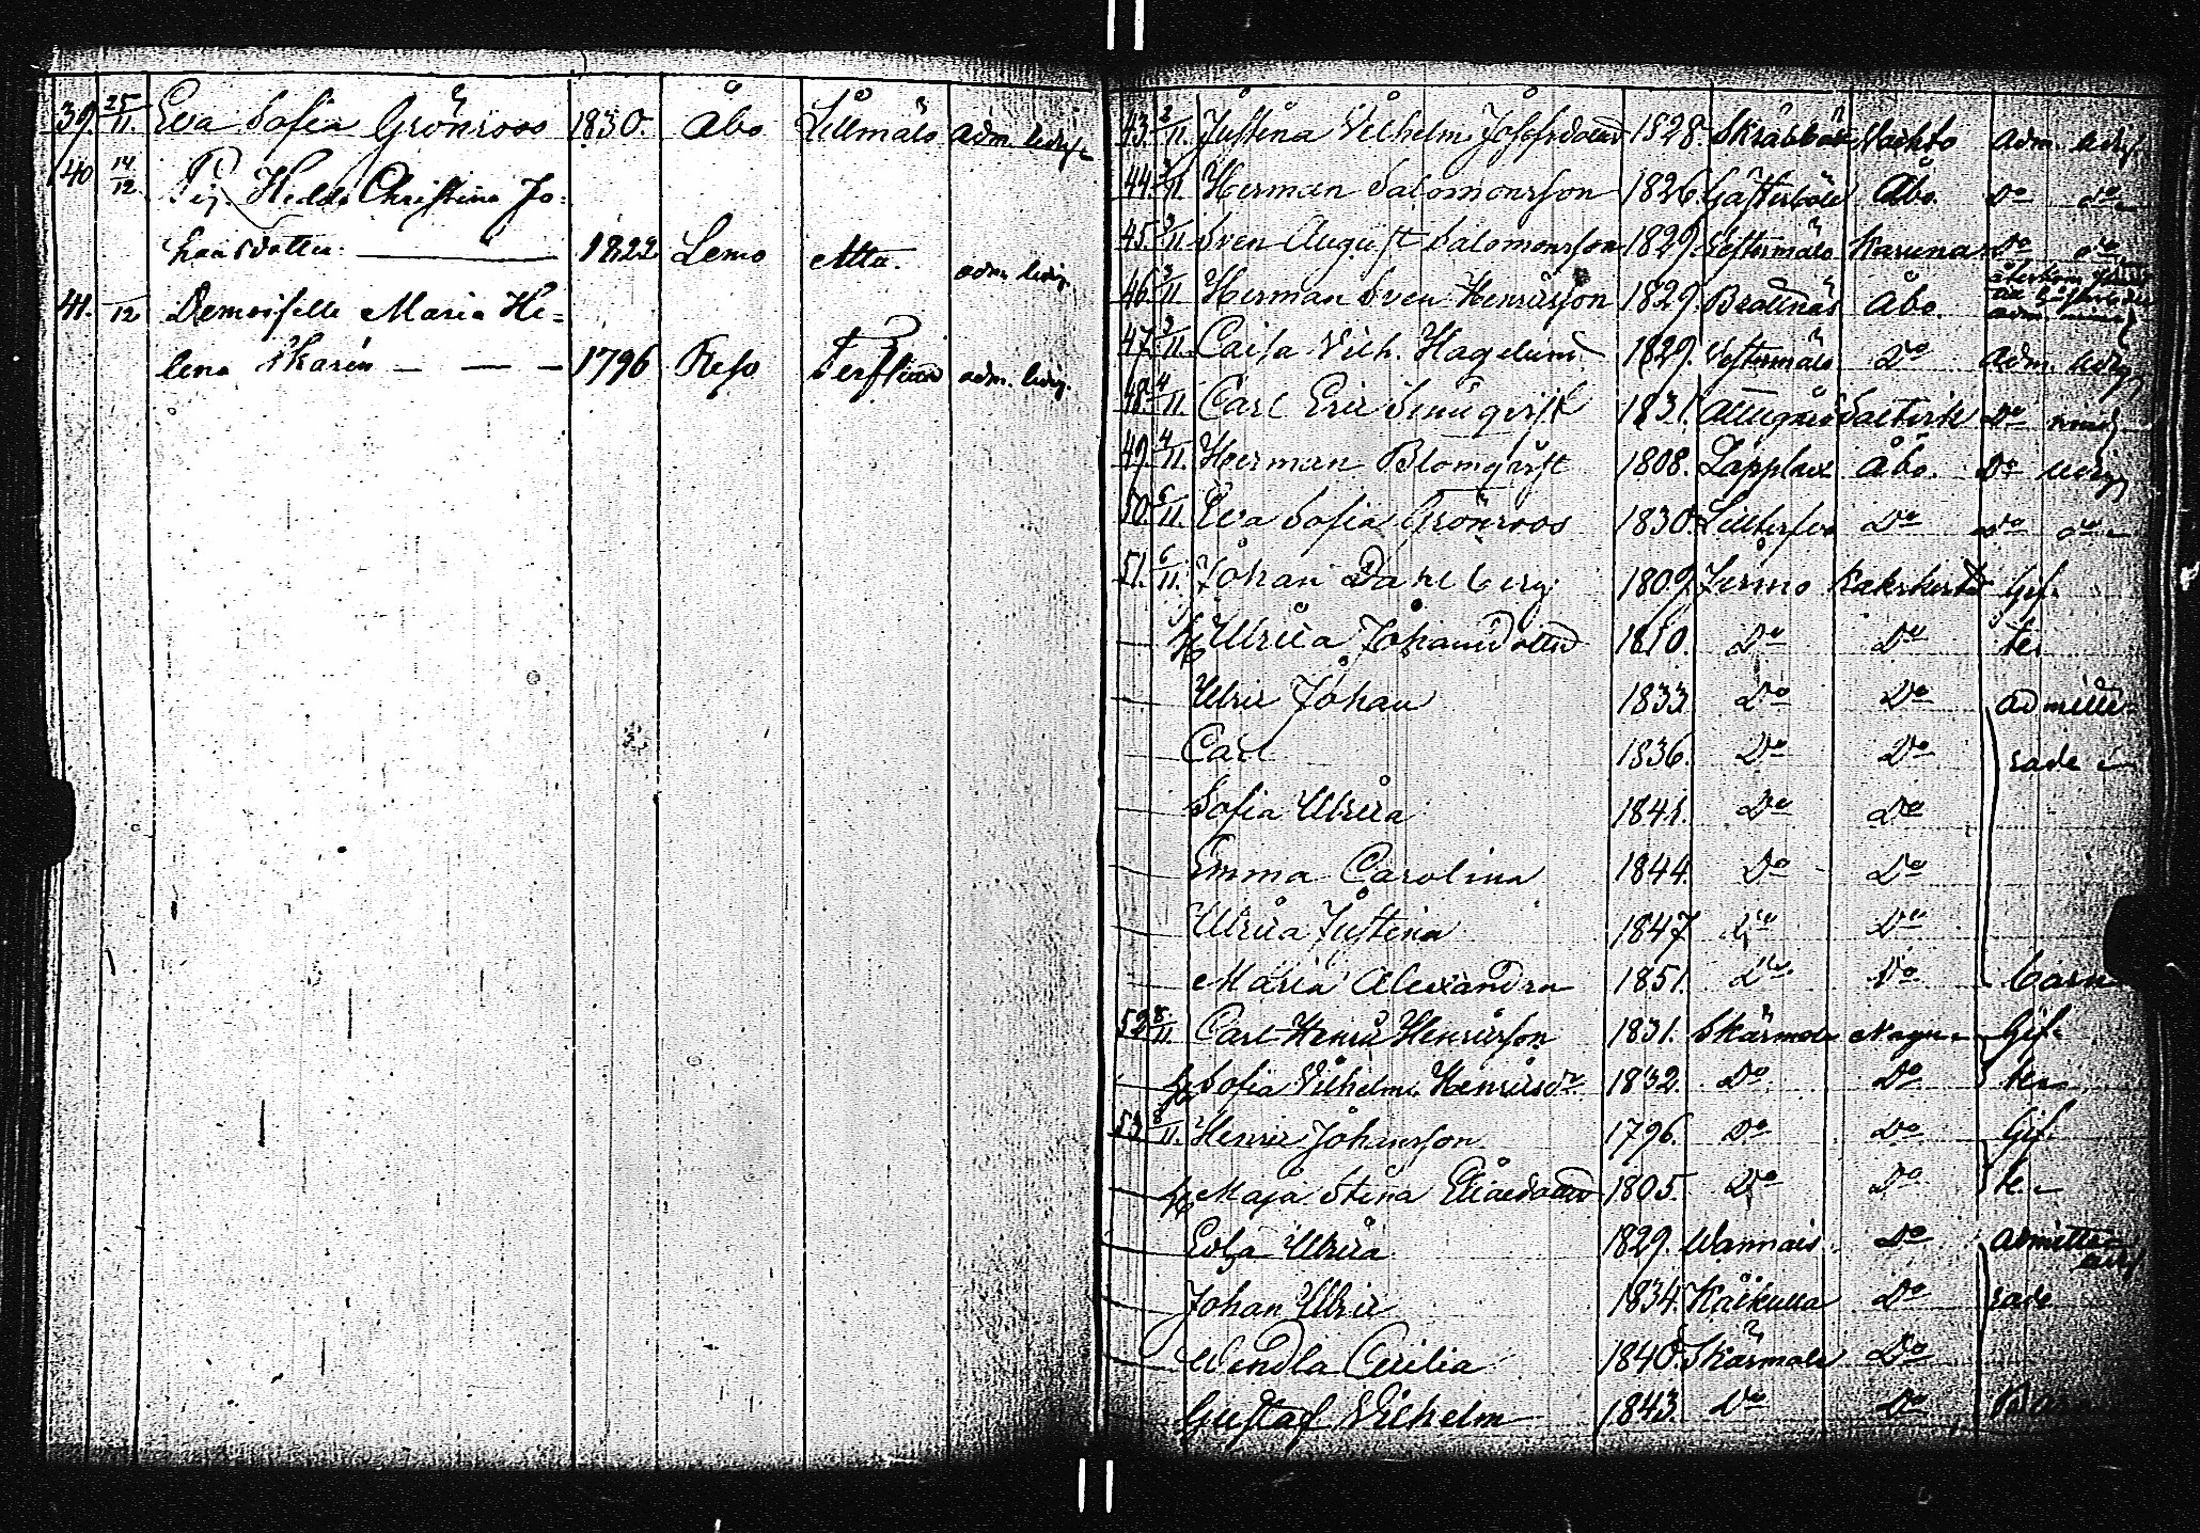 39. 25/11. Eva Sofia Grönroos 1830. Åbo Lillmälö adm. ledig
40 14/12. Pig. Hedda Christina Jo-
hansdotter 1822 Lemo Attu. adm. ledig.
41. /12 Demoiselle Maria He-
lena Skarin 1796 Reso adm. ledig.
43. 2/11. Justina Vilhelm. Josefsdotter 1828. Skräbböle Vachto adm. ledig
44. 3/11. Herman Salomonsson 1826. Gästerböle Åbo. Do do
45. 3/11 Sven August Salomonsson 1829. Vestermälö Karuna Do do
46. 3/11 Herman Sven Henricsson 1829. Bredtnäs Åbo.
47. 3/11. Caisa Vilh. Hagelund 1829. Vestermälö Do adm. ledig
48. 4/11. Carl Eric 1831. Attugård Do
49. 4/11. Herman Blomqvist 1808. Lapplax Åbo. Do ledig
50. 5/11. Eva Sofia Grönroos 1830. Do Do do
51. 6/11. Johan Dahlberg 1809. Jermo Kakskerta Gif-
h Ulrica Johansdotter 1810. Do Do te.
Ulric Johan 1833. Do Do admitte-
Carl 1836. Do Do rade
Sofia Ulrica 1841. Do Do
Emma Carolina 1844. Do Do
Ulrica Justina 1847 Do Do
Maria Alexandra 1851. Do Do barn
52 8/11. Carl Henric Henricsson 1831. Skärmola Nagu Gif-
h Sofia Vilhelm. Henricsdr 1832. Do Do te
53 8/11. Henric Johansson 1796. Do Do Gif-
h Maja Stina Eliaedotter 1805. Do Do te.
Eva Ulrica 1829. Wannais Do admitte-
Johan Ulric 1834. Käkulla Do rade
Wendla Cecilia 1840. Skärmola Do
Gustaf Vilhelm 1843. Do Do